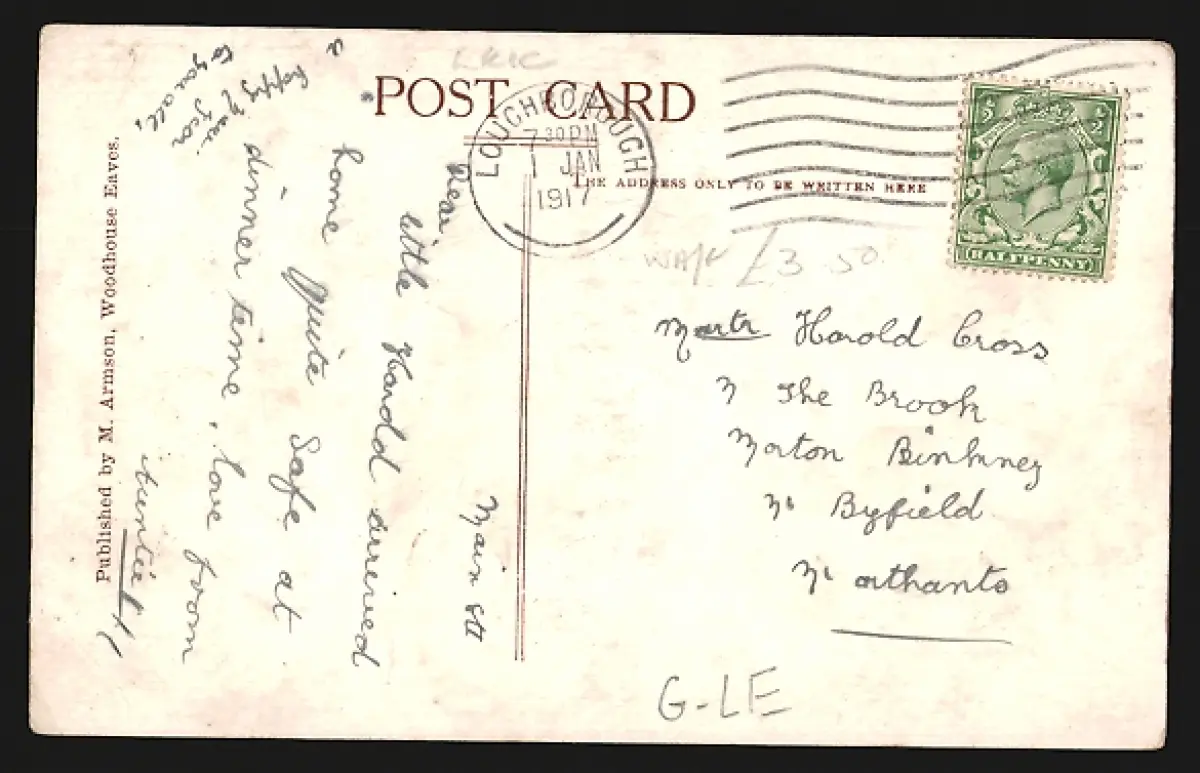 POST CARD
THE ADDRESS ONLY TO BE WRITTEN HERE
LOUGHBOROUGH
7 30 PM
1 JAN
1917
HALFPENNY
£3.50
Mastr Harold Cross
The Brook
Morton Binkney
Nr Byfield
Northants
G-LE
Main St
Dear
little Harold arrived
home quite safe at
dinner time. love from
Auntie
a happy New Year
to you all,
Published by M. Armson, Woodhouse Eaves.